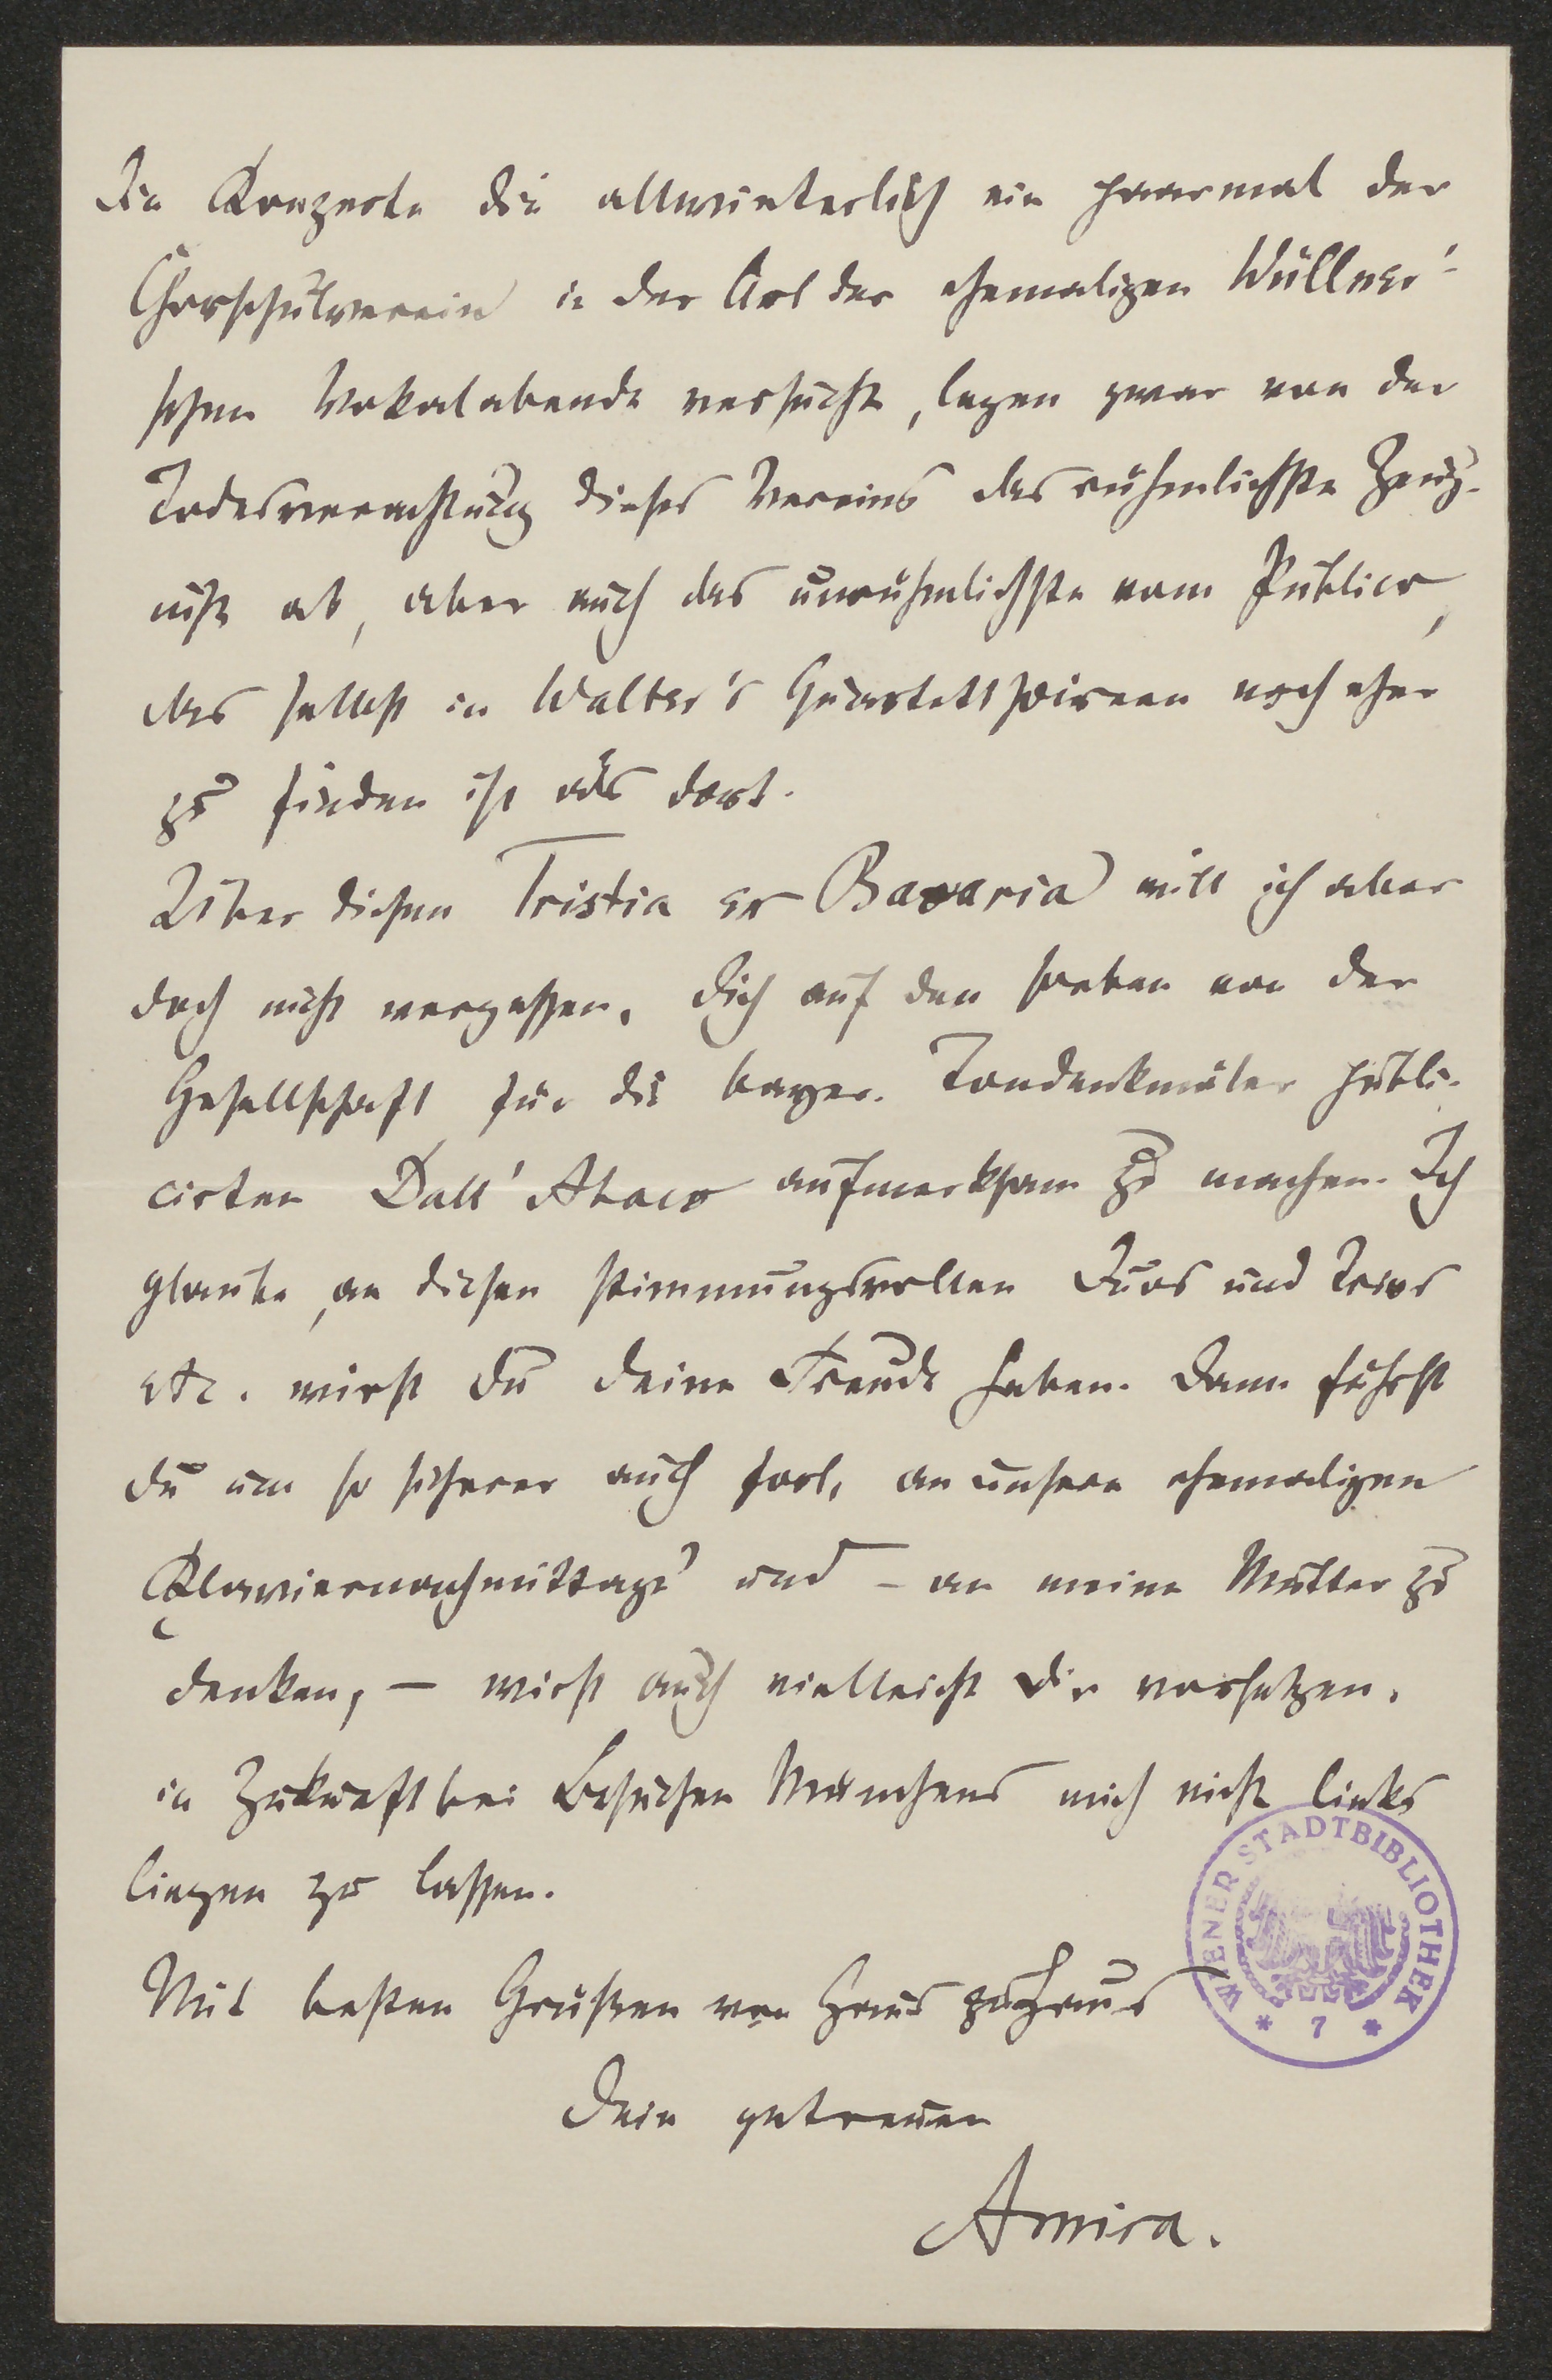 Die Konzerte die allwinterlich ein paarmal der
Chorschulverein in der Art der ehemaligen Wüllner'-
schen Vokalabende versucht, legen zwar von der
Todesverachtung dieses Vereins das rühmlichste Zeug-
niß ab, aber auch das unrühmlichste vom Publico,
das selbst in Walter's Quartettsoireen noch eher
zu finden ist als dort.
Über diesen Tristia ex Bavaria will ich aber
doch nicht vergessen, Dich auf den soeben von der
Gesellschaft für die bayer. Tondenkmäler publi-
cirten Dall' Abaco aufmerksam zu machen. Ich
glaube, an diesen stimmungsvollen Duos und Trios
etc. wirst Du Deine Freude haben. Dann fährst
Du um so sicherer auch fort, an unsere ehemaligen
Klaviernachmittage und – an meine Mutter zu
denken, – wirst auch vielleicht Dir vorsetzen,
in Zukunft bei Besuchen Münchens mich nicht links
liegen zu lassen.
Mit besten Grüßen von Haus zu Haus
Dein getreuer
Amira.
WIENER STADTBIBLIOTHEK
* 7 *